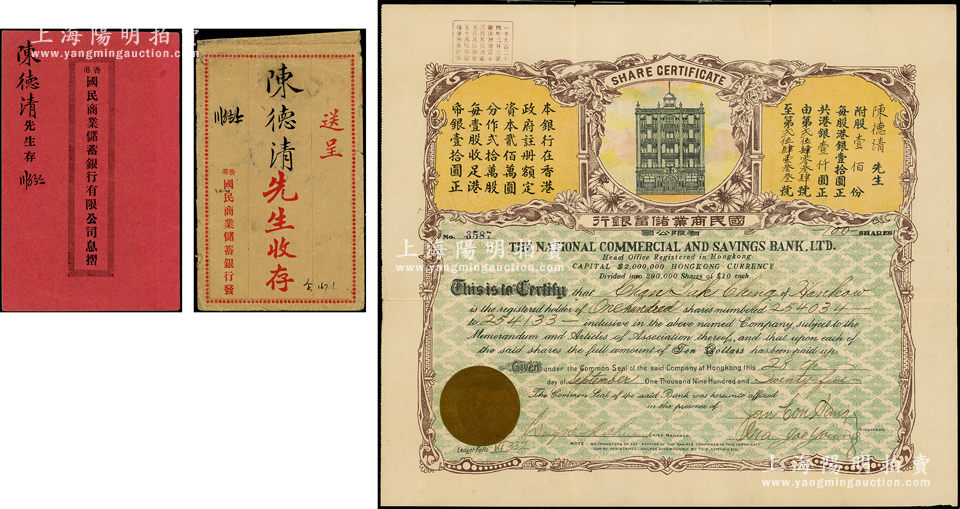 上海陽明拍賣
www.yangmingauction.com
陳德清先生存
香港
國民商業儲蓄銀行有限公司息摺
送呈
陳德清先生收存
香港
國民商業儲蓄銀行發
SHARE CERTIFICATE
本銀行在香港
政府註册額定
資本貳佰萬圓
分作貳拾萬股
每壹股收足港
帝銀壹拾圓正
陳德清 先生
附股壹佰份
每股港銀壹拾圓正
共港銀壹仟圓正
由第貳伍肆零叁肆號
至第貳伍肆壹叁叁號
行銀蓄儲業商民國
司公限有
No. 3587
100 SHARES
THE NATIONAL COMMERCIAL AND SAVINGS BANK, LTD.
Head Office Registered in Hongkong
CAPITAL $2,000,000 HONGKONG CURRENCY
Divided into 200,000 Shares of $10 each
This is to Certify that Chan Tuk Ching of Hankow
is the registered holder of One hundred shares numbered 254034
to 254133 inclusive in the above named Company, subject to the
Memorandum and Articles of Association thereof, and that upon each of
the said shares the full amount of Ten Dollars has been paid up.
Given under the Common Seal of the said Company at Hongkong this 28th
day of September One Thousand Nine Hundred and Twenty five
The Common Seal of the said Bank was hereunto affixed
in the presence of
CHIEF MANAGER
DIRECTORS
NOTE - NO TRANSFERS OF ANY PORTION OF THE SHARES COMPRISED IN THIS CERTIFICATE
CAN BE REGISTERED, UNLESS ACCOMPANIED BY THIS CERTIFICATE.
Ledger Folio
上海陽明拍賣
www.yangmingauction.com